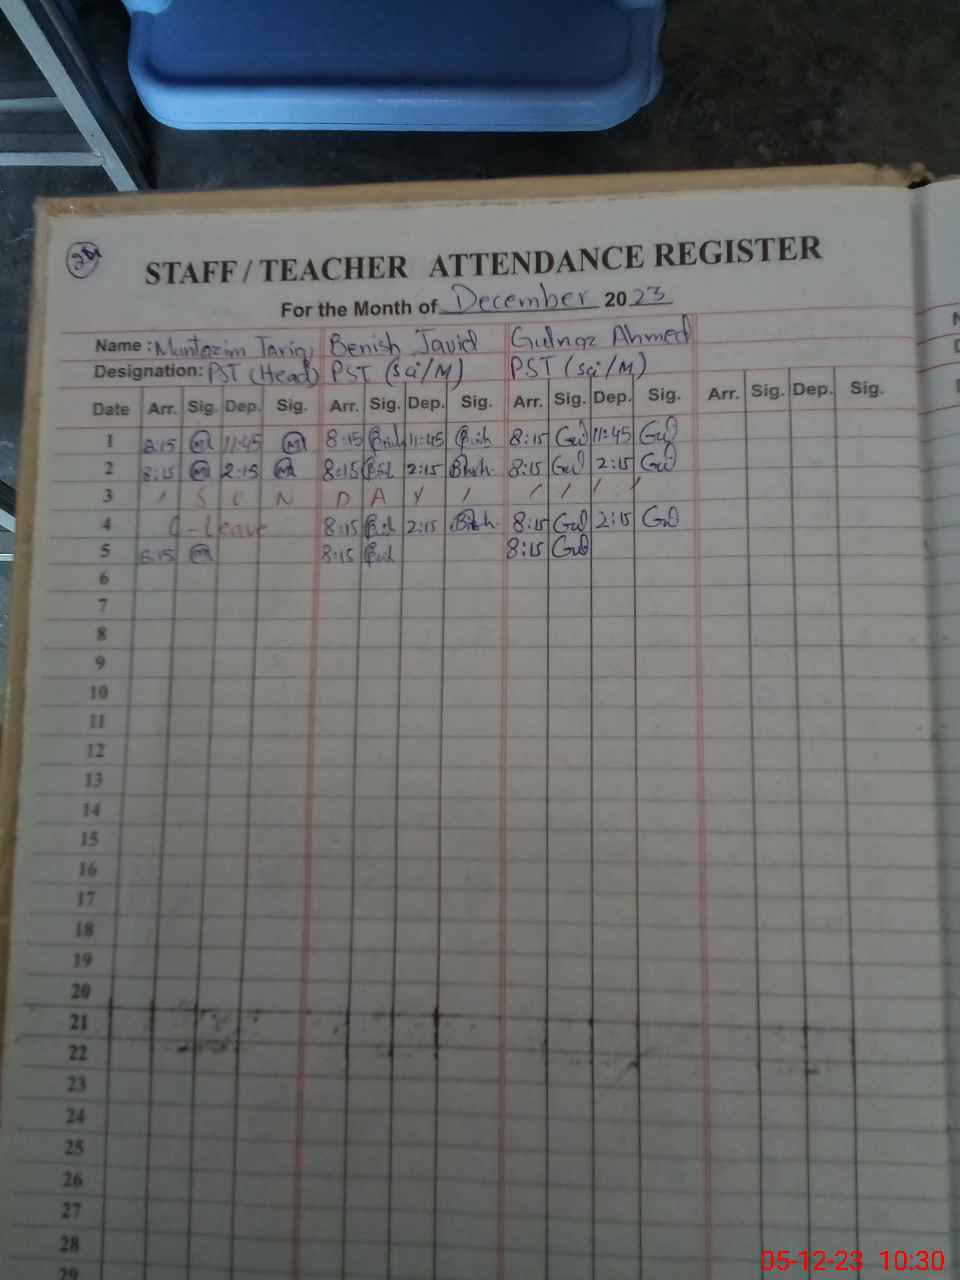 STAFF / TEACHER ATTENDANCE REGISTER
For the Month of December 2023
Name : Muntazim Tariq Benish Javid Gulnaz Ahmed
Designation: PST (Head) PST (Sci/M) PST (Sci/M)
Date Arr. Sig. Dep. Sig. Arr. Sig. Dep. Sig. Arr. Sig. Dep. Sig. Arr. Sig. Dep. Sig.
1 8:15 11:45 8:15 11:45 8:15 Gul 11:45 Gul
2 8:15 2:15 8:15 2:15 8:15 Gul 2:15 Gul
3 S U N D A Y
4 C-Leave 8:15 2:15 8:15 Gul 2:15 Gul
5 8:15 8:15 8:15 Gul
6
7
8
9
10
11
12
13
14
15
16
17
18
19
20
21
22
23
24
25
26
27
28
29
05-12-23 10:30